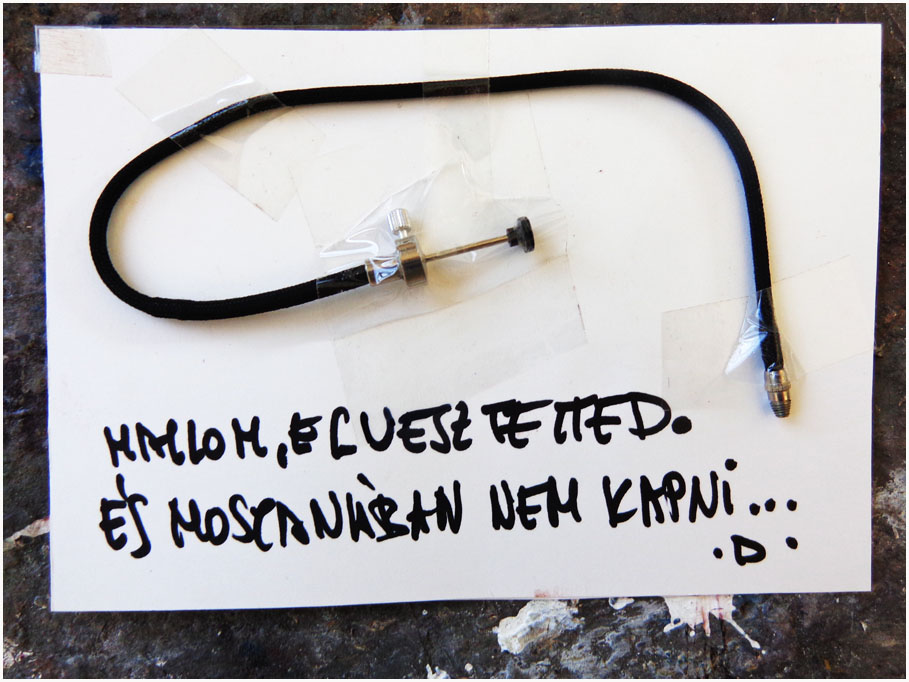 HALLOM, ELVESZTETTED.
ÉS MOSCANÁBAN NEM KAPNI...
.D.